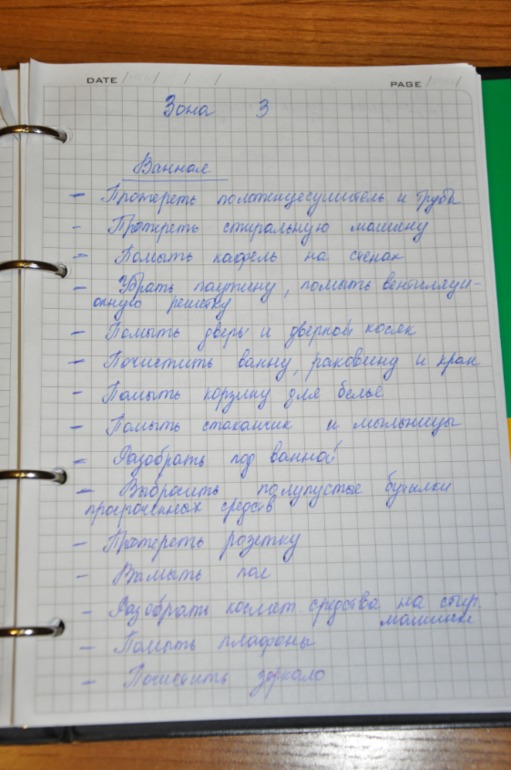 DATE / / / /
PAGE / /
Зона 3
Ванная
- Протереть полотенцесушитель и трубы
- Протереть стиральную машину
- Помыть кафель на стенах
- Убрать паутину, помыть вентиляци-
онную решетку
- Помыть дверь и дверной косяк
- Почистить ванну, раковину и кран
- Помыть корзину для белья
- Помыть стаканчик и мыльницы
- Разобрать под ванной
- Выбросить полупустые бутылки
просроченных средств
- Протереть розетку
- Вымыть пол
- Разобрать космет. средства на стир.
машинке
- Помыть плафоны
- Почистить зеркало